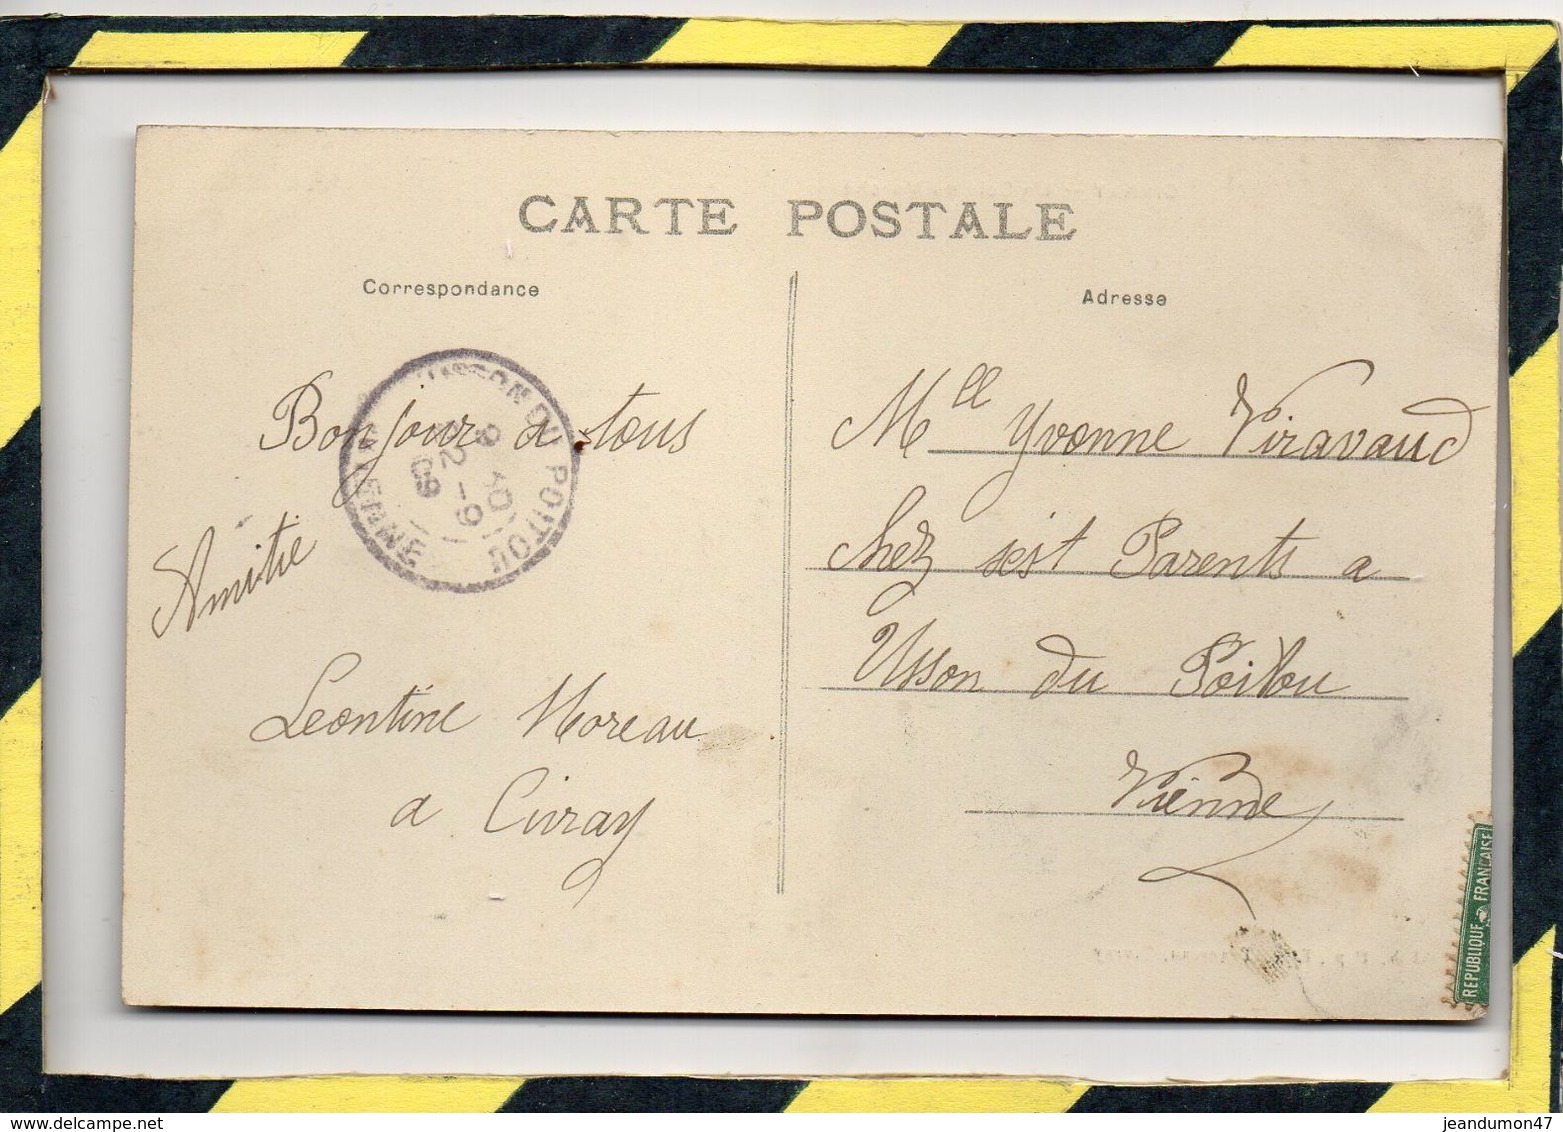 CARTE POSTALE
Correspondance
Bonjour a tous
Amitie
Leontine Moreau
a Civray
USSON DU POITOU
VIENNE
Adresse
Mlle Yvonne Viravaud
chez sest Parents a
Usson du Poitou
Vienne
REPUBLIQUE FRANCAISE
jeandumon47